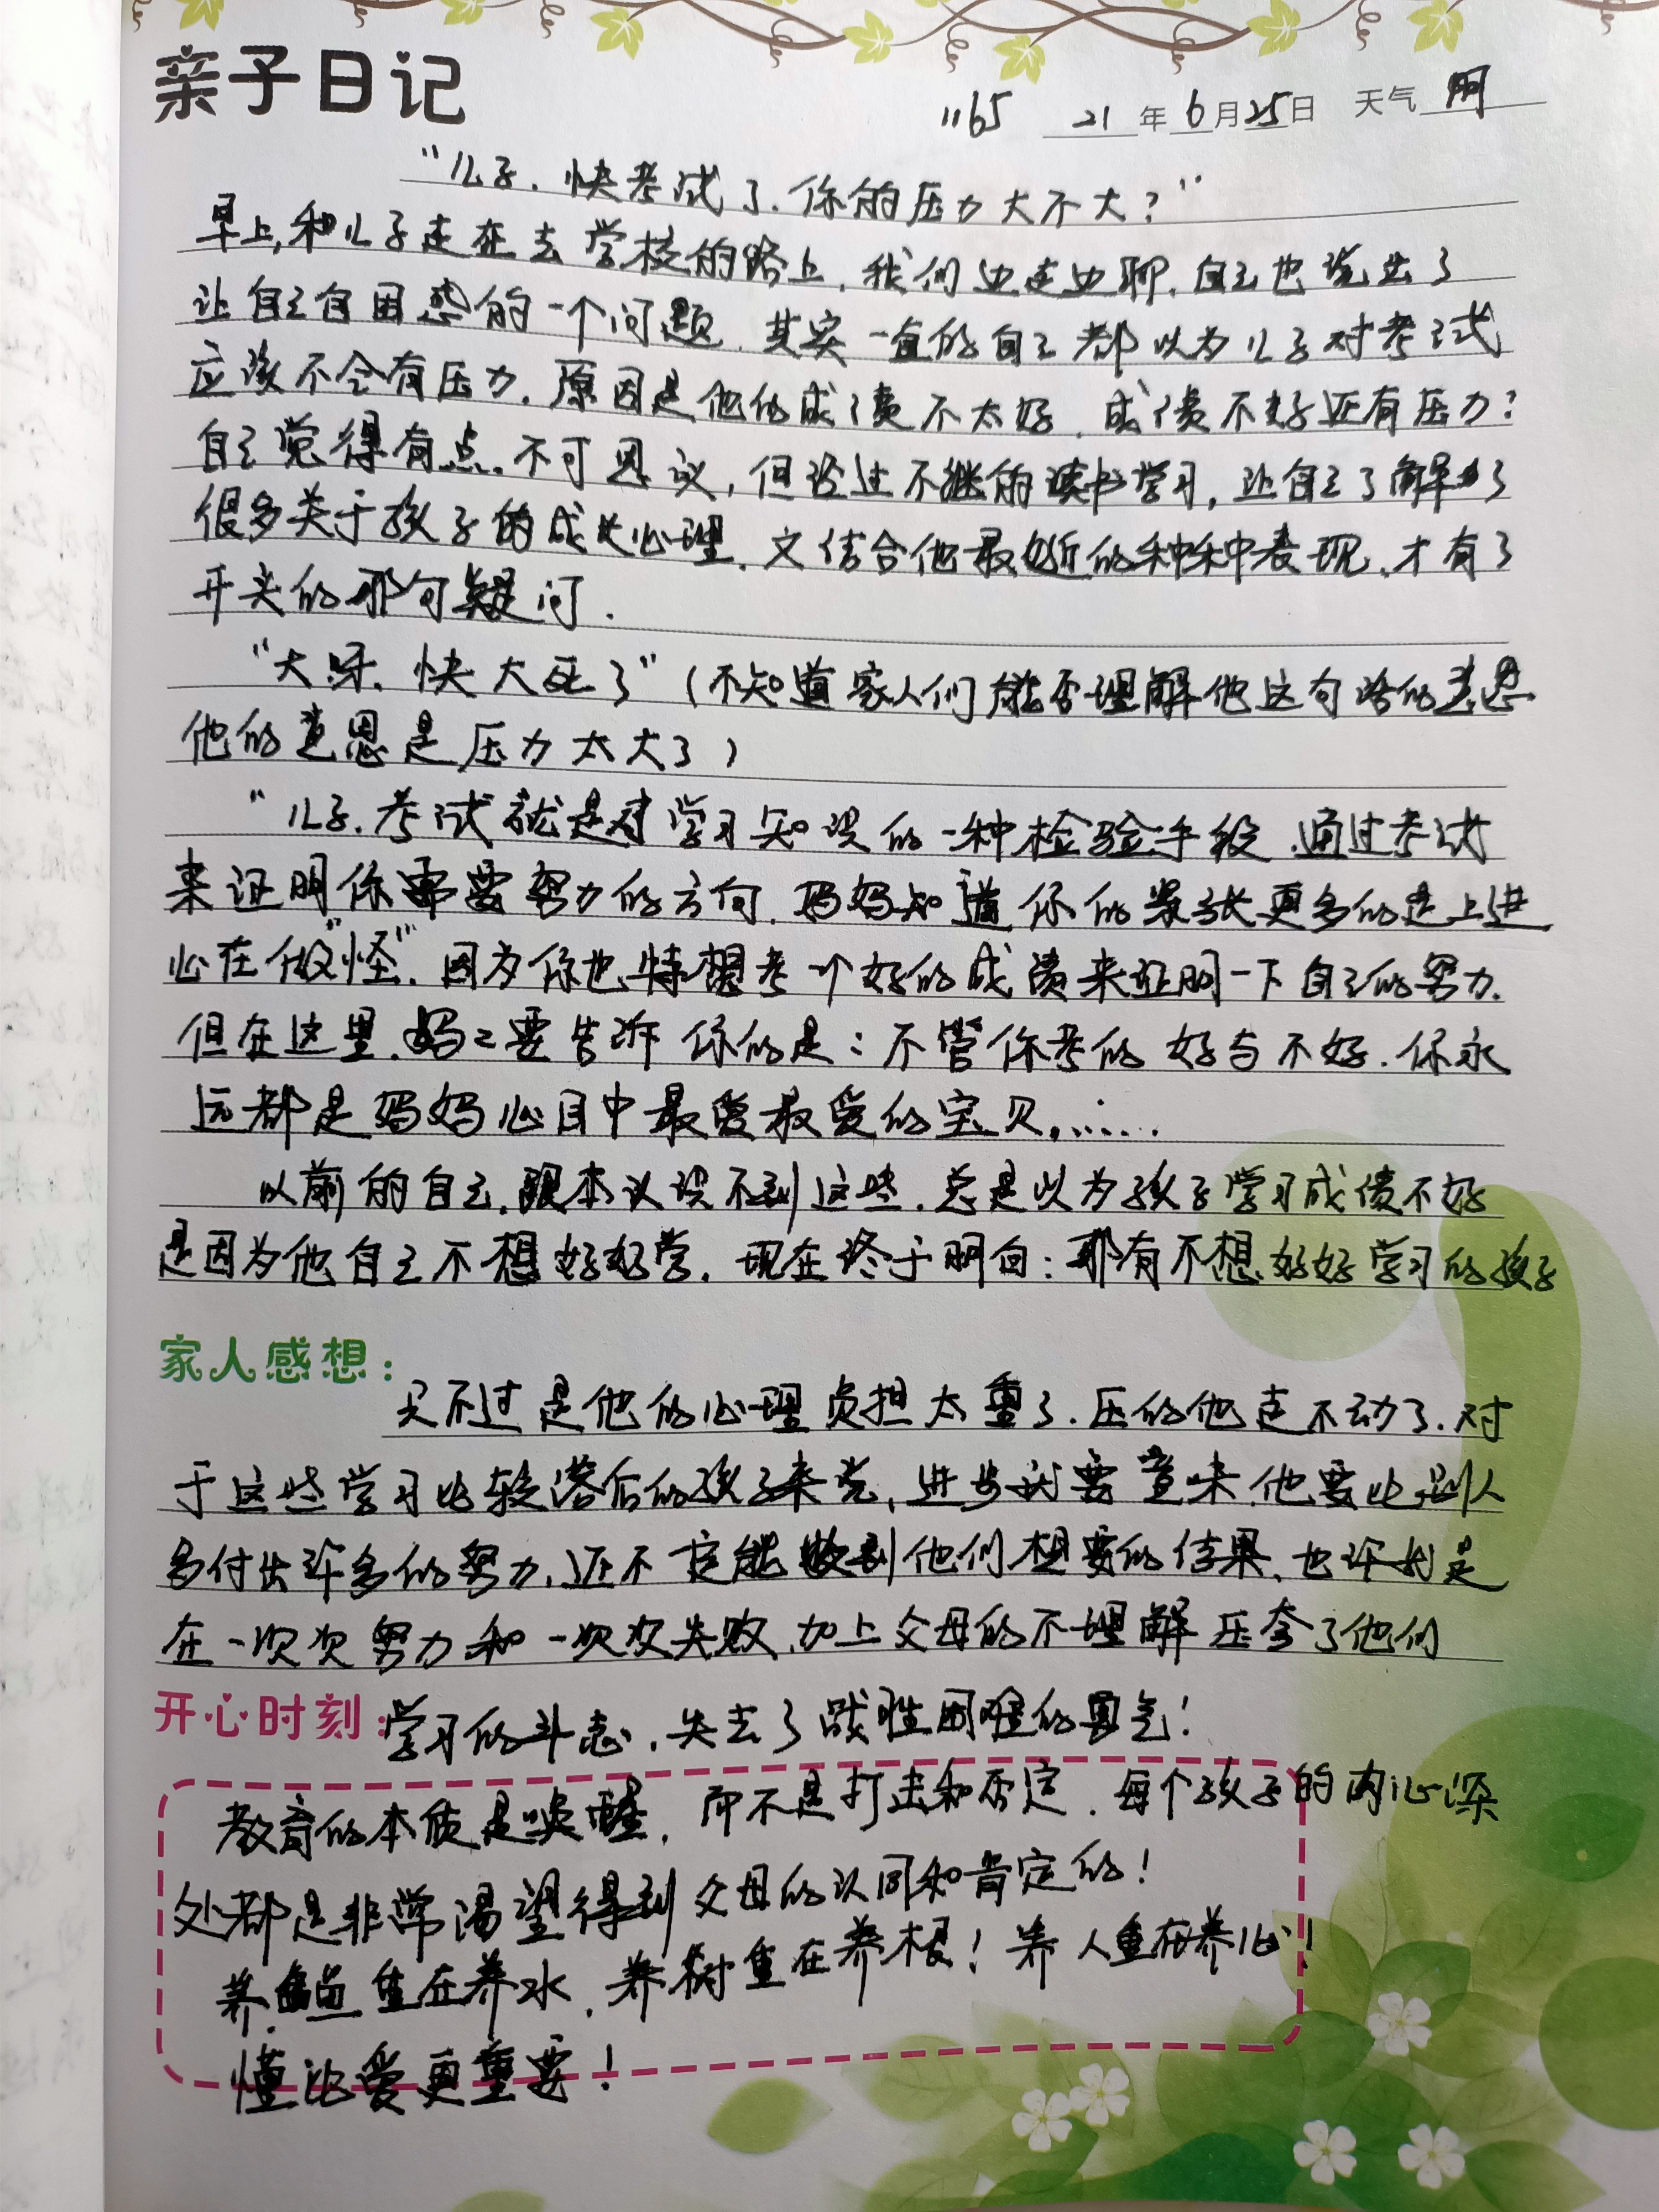 亲子日记
1165 21年6月25日 天气 阴
“儿子.快考试了.你的压力大不大?”
早上,和儿子走在去学校的路上.我们边走边聊.自己也说出了
让自己自困惑的一个问题.其实一直的自己都以为儿子对考试
应该不会有压力.原因是他的成绩不太好.成绩不好还有压力?
自己觉得有点.不可思议,但经过不继的读书学习,让自己了解了
很多关于孩子的成长心理.又结合他最近的种种表现.才有了
开头的那句疑问.
“大呀.快大死了”(不知道家人们能否理解他这句话的意思
他的意思是压力太大了)
“儿子.考试就是对学习知识的一种检验手段.通过考试
来证明你需要努力的方向.妈妈知道你的紧张更多的是上进
心在做“怪”.因为你也特想考一个好的成绩来证明一下自己的努力.
但在这里.妈妈要告诉你的是:不管你考的好与不好.你永
远都是妈妈心目中最爱最爱的宝贝.……
以前的自己.跟本认识不到这些.总是以为孩子学习成绩不好
是因为他自己不想好好学.现在终于明白:那有不想好好学习的孩子
家人感想:
只不过是他的心理负担太重了.压的他走不动了.对
于这些学习比较落后的孩子来说,进步就要意味.他要比别人
多付出许多的努力.还不一定能收到他们想要的结果.也许就是
在一次次努力和一次次失败.加上父母的不理解压夸了他们
开心时刻:
学习的斗志.失去了战胜困难的勇气!
教育的本质是唤醒,而不是打击和否定.每个孩子的内心深
处都是非常渴望得到父母的认同和肯定的!
养鱼重在养水.养树重在养根!养人重在养心!
懂比爱更重要!